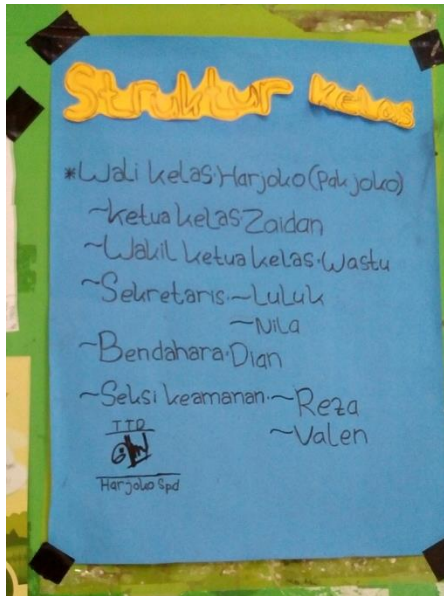 Struktur Kelas
*Wali kelas·Harjoko(Pak joko)
~ketua kelas·Zaidan
~Wakil ketua kelas·Wastu
~Sekretaris·~Luluk
~Nila
~Bendahara·Dian
~Seksi keamanan·~Reza
~Valen
TTD
Harjoko Spd